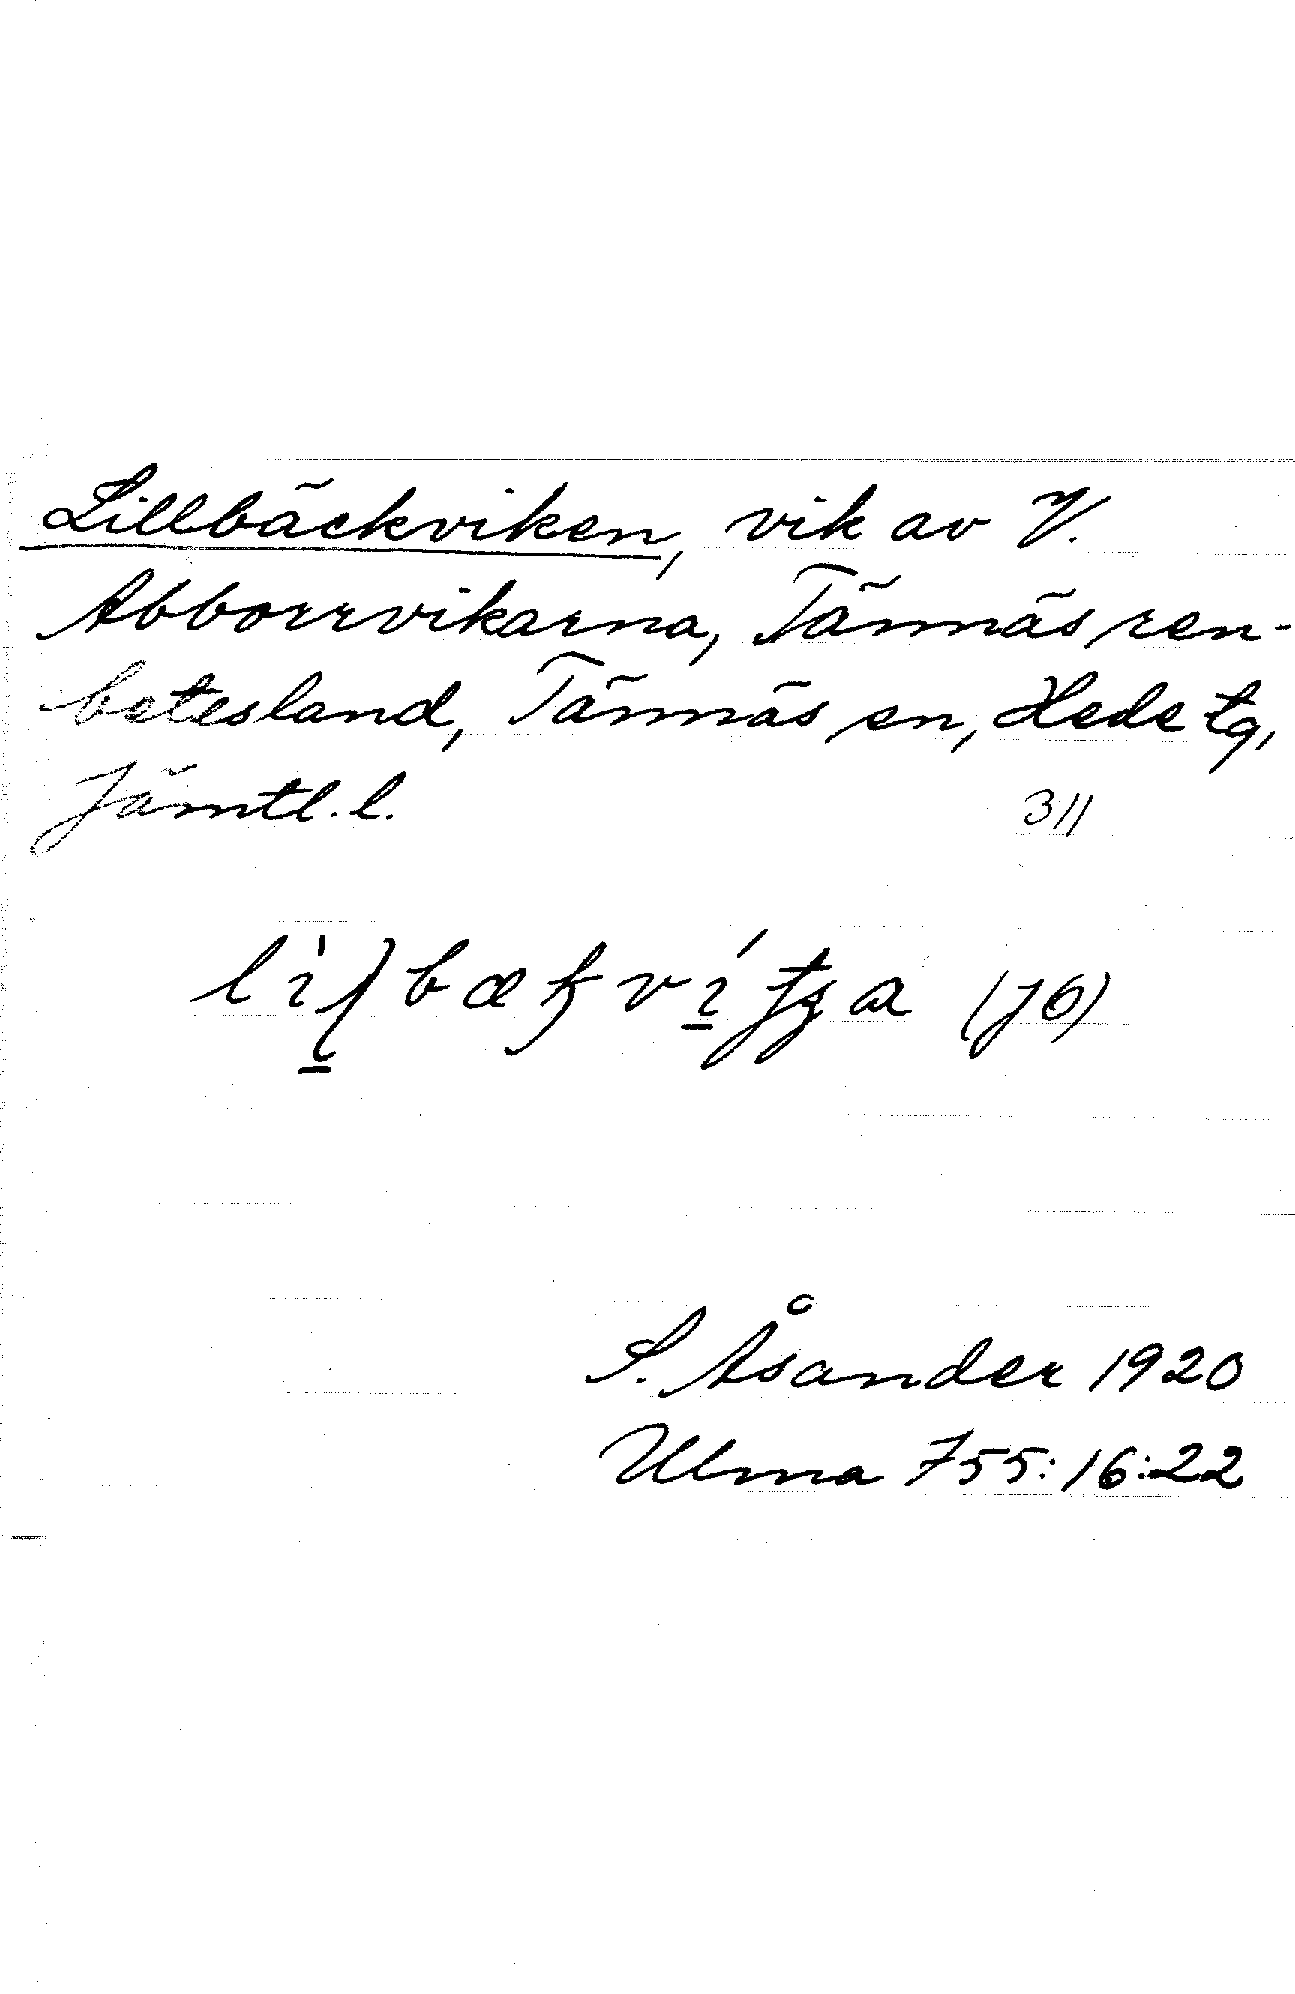 Lillbäckviken, vik av V.
Abborrvikarna, Tännäs ren-
betesland, Tännäs sn, Hede tg,
Jämtl. l. 311
(J6)
S. Åsander 1920
Ulma 755:16:22